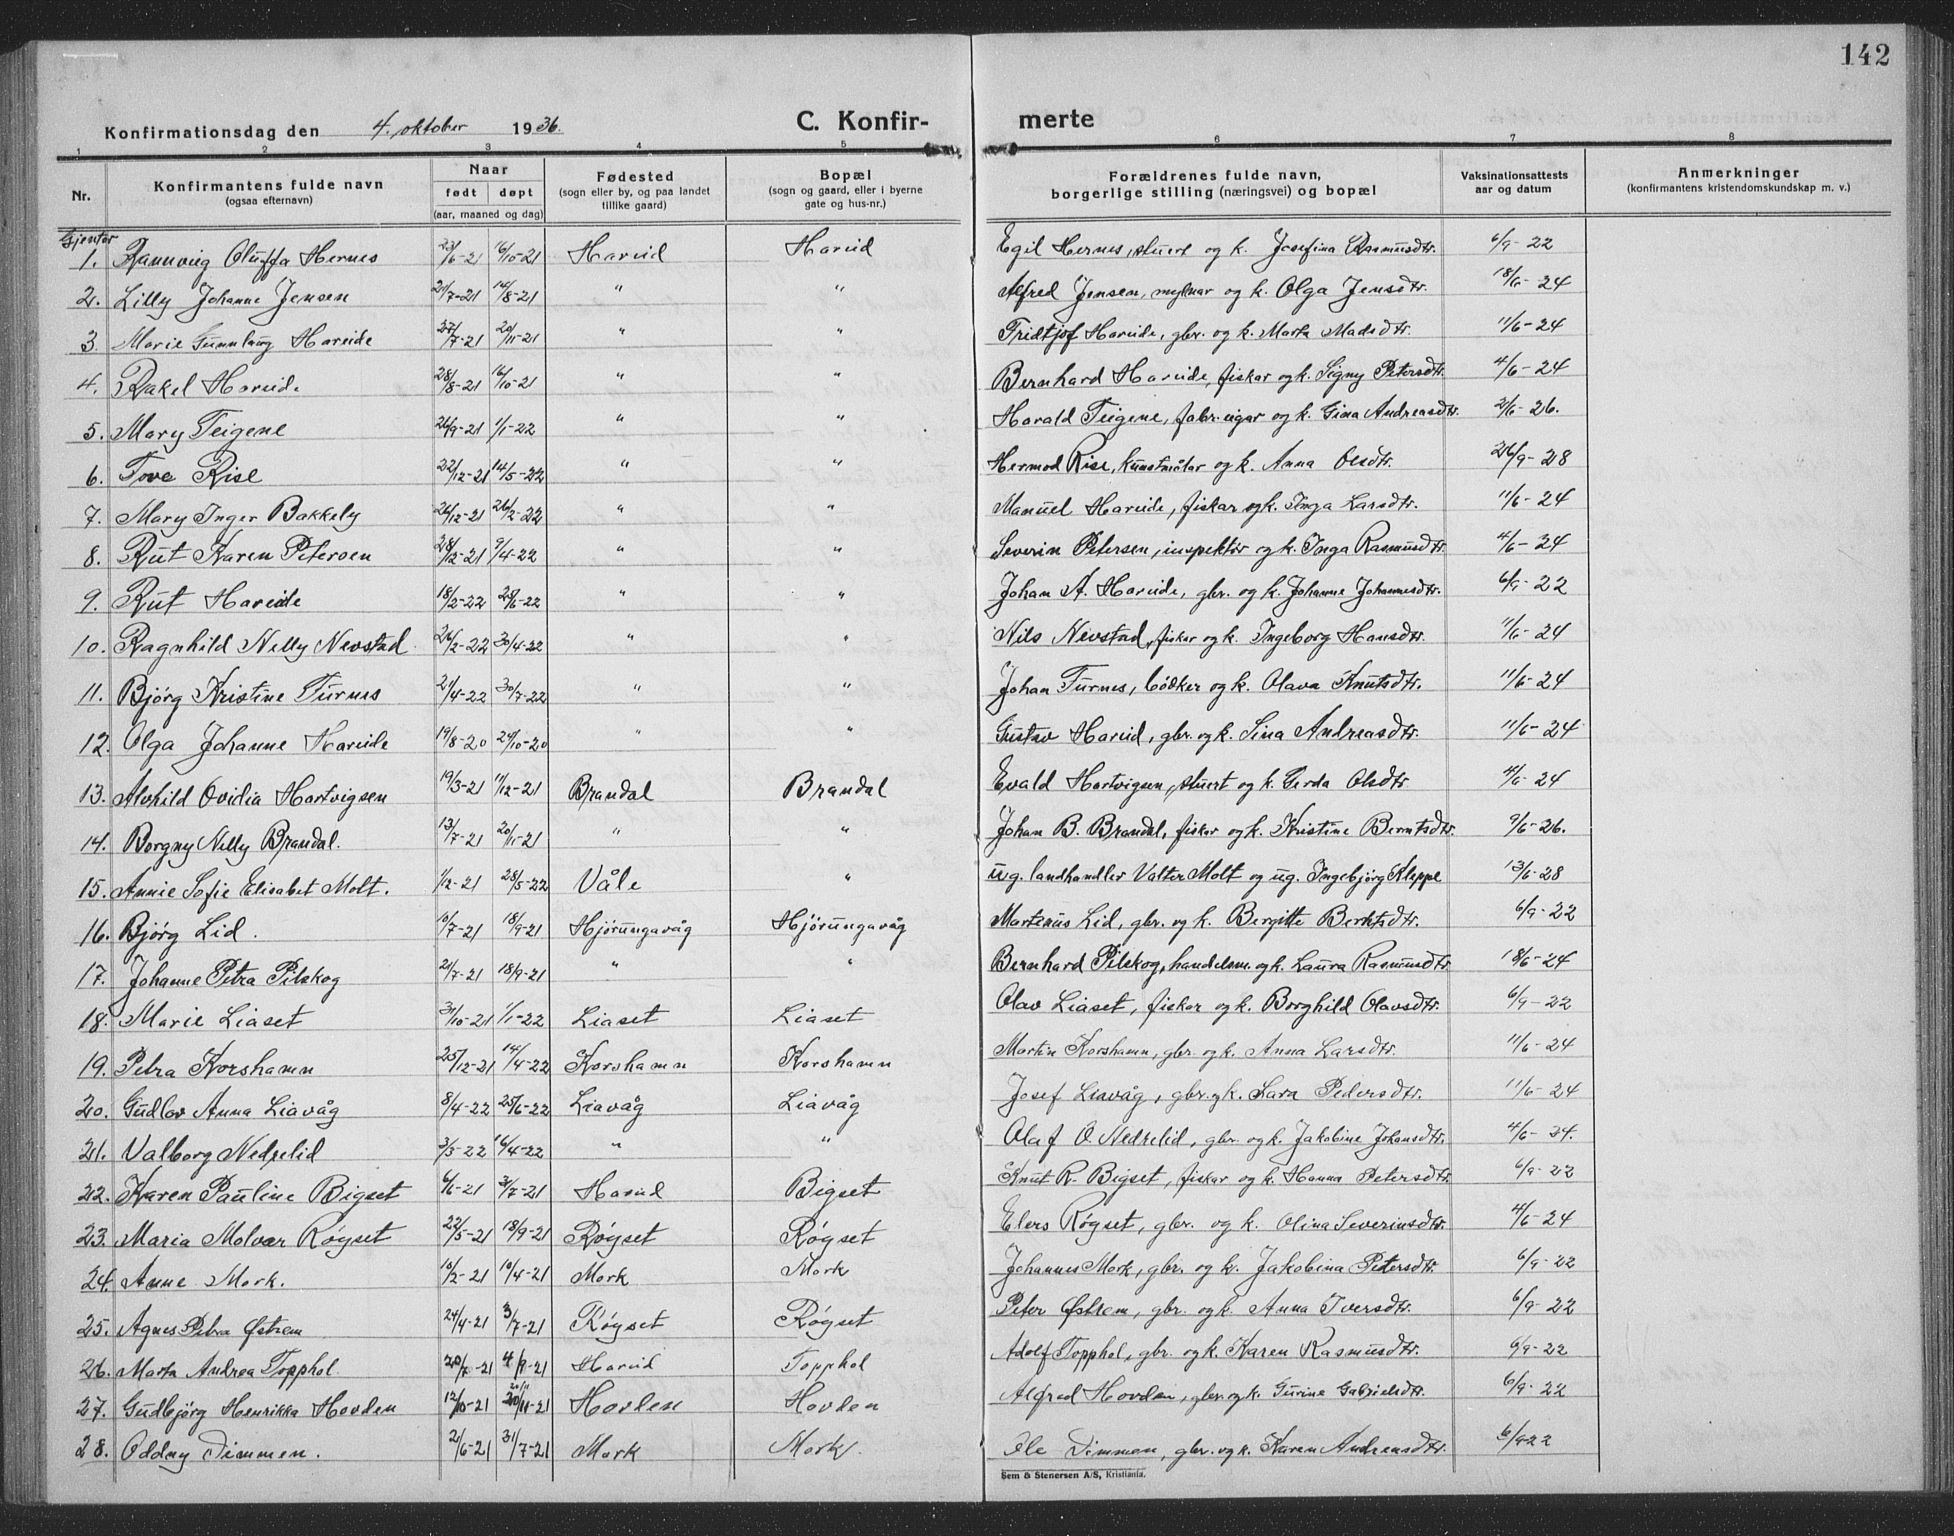 142
Konfirmationsdag den 4. oktober 1936. C. Konfirmerte
1 2 3 4 5 6 7 8
Nr. Konfirmantens fulde navn (ogsaa efternavn) Naar født døpt (aar, maaned og dag) Fødested (sogn eller by, og paa landet tillike gaard) Bopæl (sogn og gaard, eller i byerne gate og hus-nr.) Forældrenes fulde navn, borgerlige stilling (næringsvei) og bopæl Vaksinationsattests aar og datum Anmerkninger (konfirmantens kristendomskundskap m. v.)
Gjenter
1. Rannveig Oluffa Hernes 23/6-21 16/10-21 Hareid Hareid Egil Hernes, stuert og k. Josefina Rasmusdtr. 6/9-22
2. Lilly Johanne Jensen 21/7-21 14/8-21 " " Alfred Jensen, mylnar og k. Olga Jensdtr. 18/6-24
3. Marie Gunnlaug Hareide 27/7-21 20/11-21 " " Fridtjof Hareide, gbr. og k. Marta Madsdtr. 11/6-24
4. Rakel Hareide 28/8-21 16/10-21 " " Bernhard Hareide, fiskar og k. Signy Petersdtr. 4/6-24
5. Mary Teigene 26/9-21 1/1-22 " " Harald Teigene, fabr. eigar og k. Gina Andreasdtr. 2/6-26.
6. Tove Rise 22/12-21 14/5-22 " " Hermod Rise, kunstmålar og k. Anna Olsdtr. 26/9-28
7. Mary Inger Bakkely 26/12-21 26/2-22 " " Manuel Hareide, fiskar og k. Inga Larsdtr. 11/6-24
8. Rut Karen Petersen 28/12-21 9/4-22 " " Severin Petersen, inspektør og k. Inga Rasmusdtr. 4/6-24
9. Rut Hareide 18/2-22 25/6-22 " " Johan A. Hareide, gbr. og k. Johanne Johannesdtr. 6/9-22
10. Ragnhild Nelly Nevstad 26/2-22 30/4-22 " " Nils Nevstad, fiskar og k. Ingeborg Hansdtr. 11/6-24
11. Bjørg Kristine Furnes 21/4-22 30/7-22 " " Johan Furnes, bødker og k. Olava Knutsdtr. 11/6-24
12. Olga Johanne Hareide 19/8-20 24/10-20 " " Gustav Hareid, gbr. og k. Sina Andreasdtr. 11/6-24
13. Alvhild Ovidia Hartvigsen 19/3-21 11/12-21 Brandal Brandal Evald Hartvigsen, stuert og k. Gerda Olsdtr 4/6-24
14. Borgny Nelly Brandal. 13/7-21 20/11-21 " " Johan B. Brandal, fiskar og k. Kristine Berntsdtr. 9/6-26.
15. Annie Sofie Elisabet Molt. 1/12-21 28/5-22 Våle " ug. landhandler Valter Molt og ug. Ingebjørg Kleppe 13/6-28
16. Bjørg Lid. 10/7-21 18/9-21 Hjørungavåg Hjørungavåg Martinus Lid, gbr. og k. Bergitte Berntsdtr. 6/9-22
17. Johanne Petra Pilskog 21/7-21 18/9-21 " " Bernhard Pilskog, handelsm. og k. Laura Rasmusdtr 18/6-24
18. Marie Liaset 31/10-21 1/1-22 Liaset Liaset Olav Liaset, fiskar og k. Borghild Olavsdtr. 6/9-22
19. Petra Korshamn 25/12-21 14/4-22 Korshamn Korshamn Martin Korshamn, gbr. og k. Anna Larsdtr. 11/6-24
20. Gudlov Anna Liavåg 8/4-22 25/6-22 Liavåg Liavåg Josef Liavåg, gbr. og k. Lara Pedersdtr. 11/6-24
21. Valborg Nedrelid 3/3-22 16/4-22 " " Olaf O. Nedrelid, gbr. og k. Jakobine Johansdtr. 4/6-24.
22. Karen Pauline Bigset 6/6-21 31/7-21 Hareid Bigset Knut R. Bigset, fiskar og k. Hanna Petersdtr. 6/9-22
23. Maria Molvær Røyset 22/5-21 18/9-21 Røyset Røyset Elers Røyset, gbr. og k. Olina Severinsdtr. 4/6-24
24. Anne Mork. 10/2-21 10/4-21 Mork Mork Johannes Mork, gbr. og k. Jakobina Petersdtr. 6/9-22
25. Agnes Petra Østrem 24/4-21 3/7-21 Røyset Røyset Peter Østrem, gbr. og k. Anna Iversdtr. 6/9-22
26. Marta Andrea Topphol. 20/7-21 4/9-21 Hareid Topphol Adolf Topphol, gbr. og k. Karen Rasmusdtr. 6/9-22
27. Gudbjørg Henrikka Hovden 12/10-21 20/11-21 Hovden Hovden Alfred Hovden, gbr. og k. Gurine Gabrielsdtr. 6/9-22
28. Oddny Dimmen. 2/6-21 31/7-21 Mork Mork. Ole Dimmen, gbr. og k. Karen Andreasdtr. 6/9-22
Sem & Stenersen A/S, Kristiania.